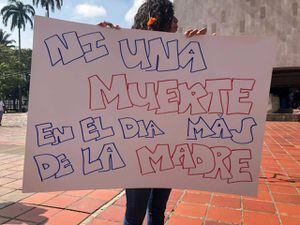 NI UNA
MUERTE
EN EL DIA MÁS
DE LA MADRE